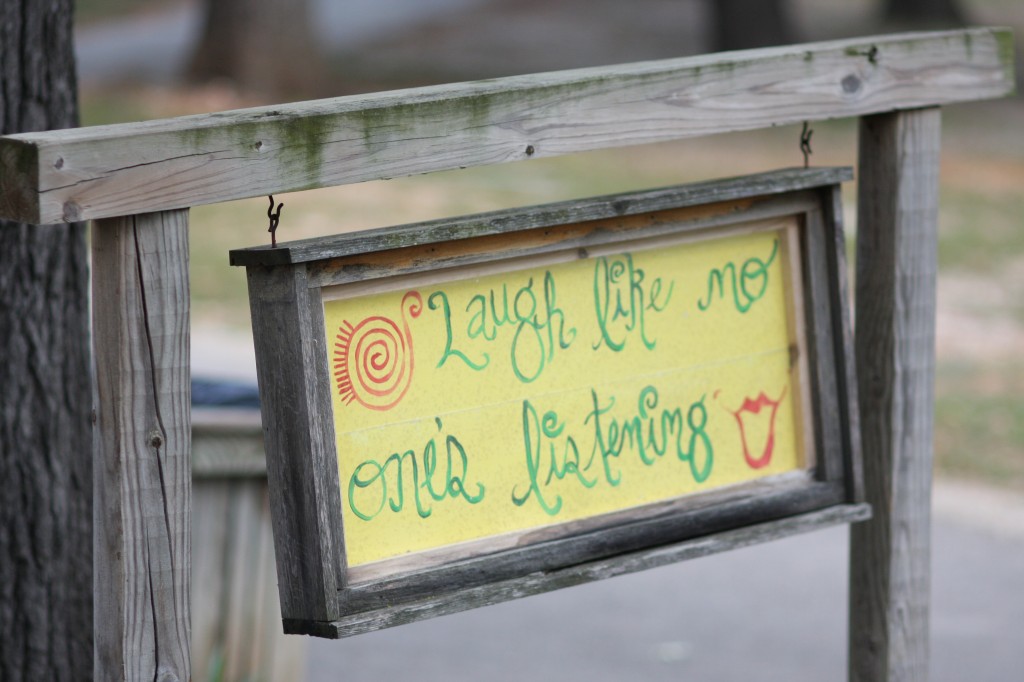 Laugh like no
one's listening